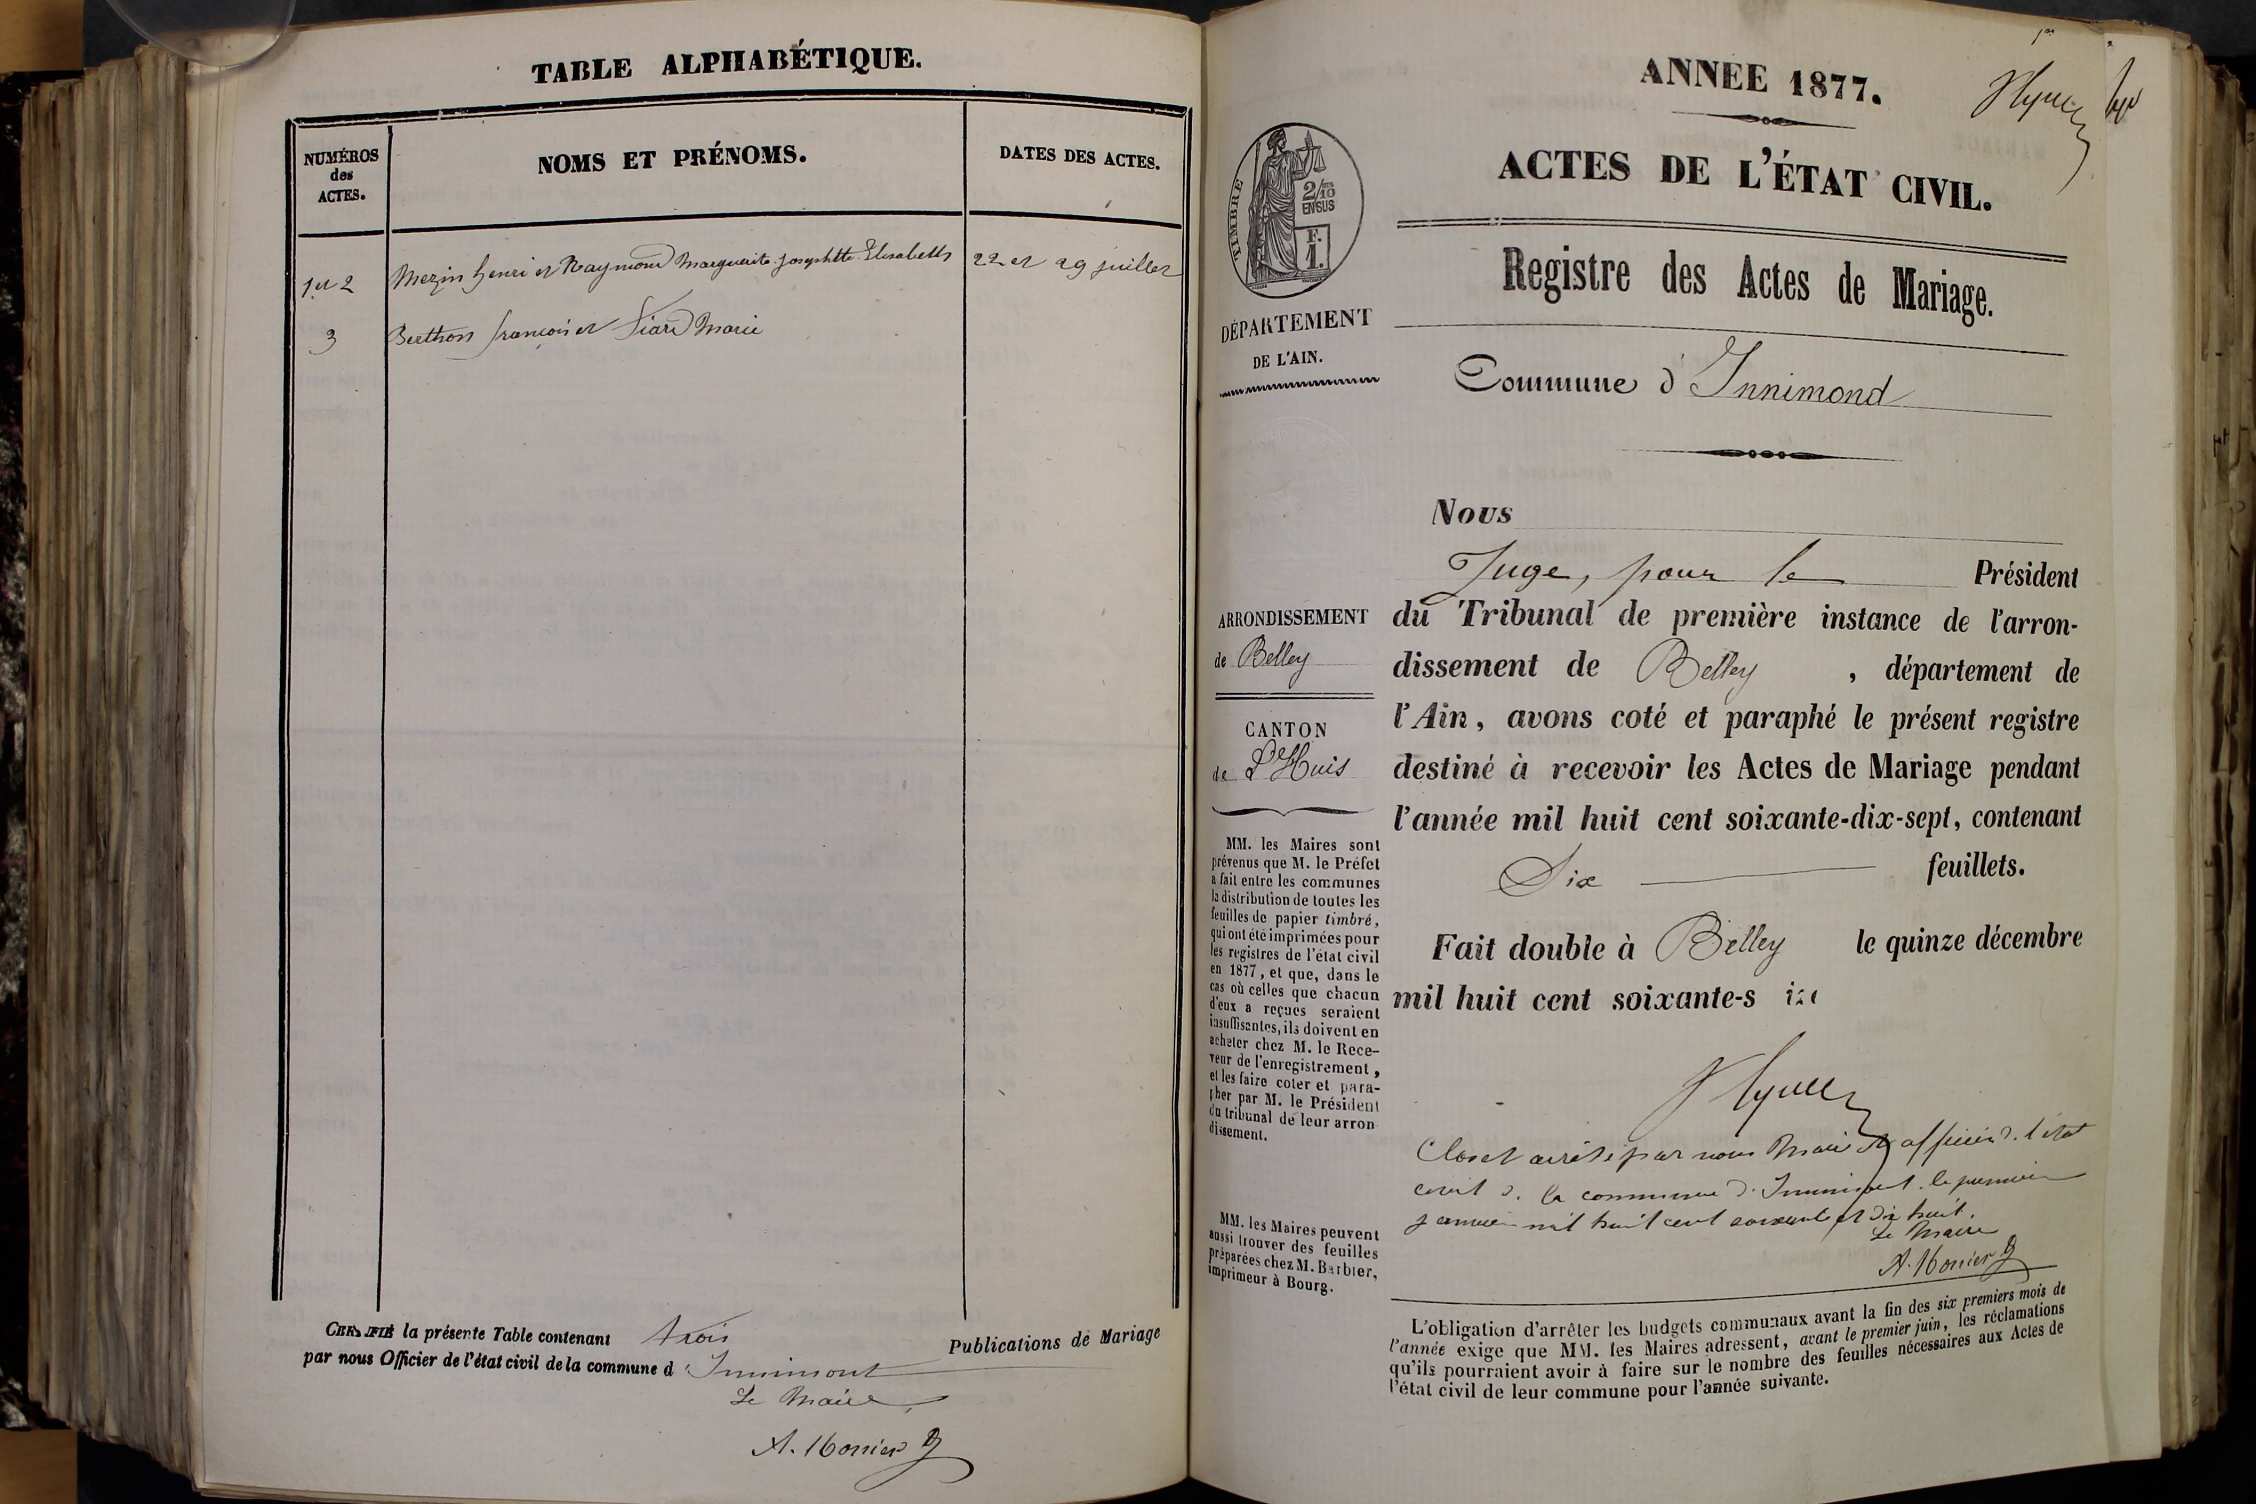 TABLE ALPHABÉTIQUE.
NUMÉROS
des
ACTES.
NOMS ET PRÉNOMS.
DATES DES ACTES.
1 et 2 Mezin henri et Raymond Marguerite Josephtte Elisabeth 22 et 29 juillet
3 Berthon françois et Siard Marie
CERTIFIÉ la présente Table contenant trois Publications de Mariage
par nous Officier de l'état civil de la commune d'Innimont
Le Maire
ANNÉE 1877.
ACTES DE L'ÉTAT CIVIL.
TIMBRE
2/10
EN SUS
F.
1.
Registre des Actes de Mariage.
DÉPARTEMENT
DE L'AIN.
Commune d'Innimond
Nous
Juge, pour le Président
ARRONDISSEMENT
de Belley
du Tribunal de première instance de l'arron-
dissement de Belley, département de
l'Ain, avons coté et paraphé le présent registre
CANTON
de L'Huis
destiné à recevoir les Actes de Mariage pendant
l'année mil huit cent soixante-dix-sept, contenant
Six feuillets.
Fait double à Belley le quinze décembre
mil huit cent soixante-s
MM. les Maires sont
prévenus que M. le Préfet
a fait entre les communes
la distribution de toutes les
feuilles de papier timbré,
qui ont été imprimées pour
les registres de l'état civil
en 1877, et que, dans le
cas où celles que chacun
d'eux a reçues seraient
insuffisantes, ils doivent en
acheter chez M. le Rece-
veur de l'enregistrement,
et les faire coter et para-
pher par M. le Président
du tribunal de leur arron-
dissement.
Clos et arrêté par nous Maire officier d. l'état
civil d. la commune d'Innimont le premier
janvier mil huit cent soixante et dix huit.
Le Maire
MM. les Maires peuvent
aussi trouver des feuilles
préparées chez M. Barbier,
imprimeur à Bourg.
L'obligation d'arrêter les budgets communaux avant la fin des six premiers mois de
l'année exige que MM. les Maires adressent, avant le premier juin, les réclamations
qu'ils pourraient avoir à faire sur le nombre des feuilles nécessaires aux Actes de
l'état civil de leur commune pour l'année suivante.